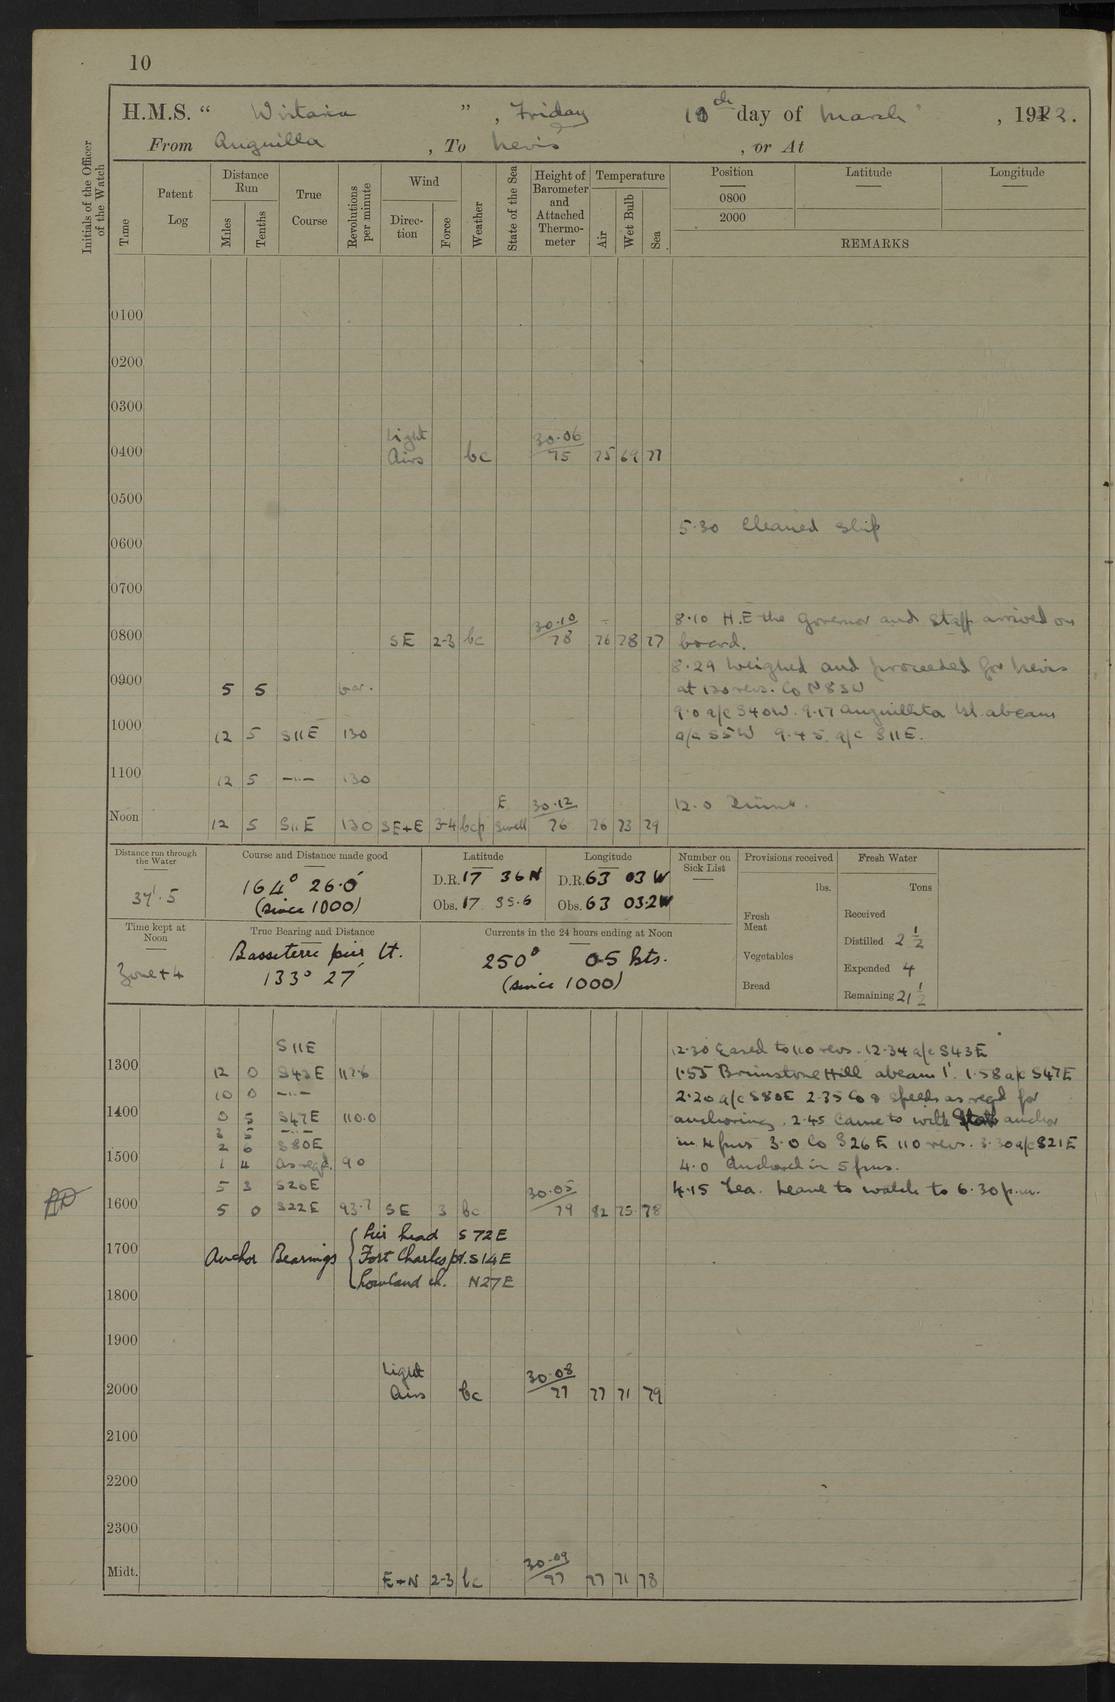 10
H.M.S. " Wistaria ", Friday 10th day of March, 1922.
From Anguilla, To Nevis, or At
Initials of the Officer of the Watch
Time
Patent Log
Distance Run
Miles
Tenths
True Course
Revolutions per minute
Wind
Direction
Force
Weather
State of the Sea
Height of Barometer and Attached Thermometer
Temperature
Air
Wet Bulb
Sea
Position
Latitude
Longitude
0800
2000
REMARKS
0100
0200
0300
0400 Light Airs bc 30.06 75 75 69 77
0500
5.30 Cleaned Ship
0600
0700
0800 SE 2-3 bc 30.10 78 76 78 77
8.10 H.E the Governor and Staff arrived on
board.
8.29 Weighed and proceeded for Nevis
0900 5 5 var.
at 120 revs. Co N83W
9.0 a/c S40W. 9.17 Anguillita Isl. abeam
1000 12 5 S11E 130
a/c S5W 9.45 a/c S11E.
1100 12 5 —"— 130
12.0
Noon 12 5 S11E 130 SE+E 3-4 bcp E Swell 30.12 76 76 73 79
Distance run through the Water
37'.5
Course and Distance made good
164° 26.0'
(since 1000)
Latitude
D.R. 17 36 N
Obs. 17 35.6
Longitude
D.R. 63 03 W
Obs. 63 03.2W
Number on Sick List
Provisions received
lbs.
Fresh Meat
Vegetables
Bread
Fresh Water
Tons
Received
Distilled 2 1/2
Expended 4
Remaining 21 1/2
Time kept at Noon
Zone + 4
True Bearing and Distance
Basseterre pier Lt.
133° 27'
Currents in the 24 hours ending at Noon
250° 0.5 kts.
(since 1000)
S11E
12.30 Eased to 110 revs. 12.34 a/c S43E
1300 12 0 S43E 112.6
1.55 Brimstone Hill abeam 1'. 1.58 a/c S47E
10 0 —"—
2.20 a/c S80E 2.35 Co & speeds as reqd for
1400 0 5 S47E 110.0
anchoring. 2.45 Came to with anchor
3 5 —"—
2 0 S80E
in 4 fms 3.0 Co S26E 110 revs. 3.30 a/c S21E
1500 1 4 as reqd. 90
4.0 Anchored in 5 fms.
5 3 S26E
4.15 Tea. Leave to watch to 6.30 p.m.
1600 5 0 S22E 93.7 SE 3 bc 30.05 79 82 75 78
1700 Anchor Bearings { Pier head S72E
Fort Charles pt. S14E
Lowland ch. N27E
1800
1900
2000 Light Airs bc 30.08 77 77 71 79
2100
2200
2300
Midt. E+N 2-3 bc 30.09 77 77 71 78